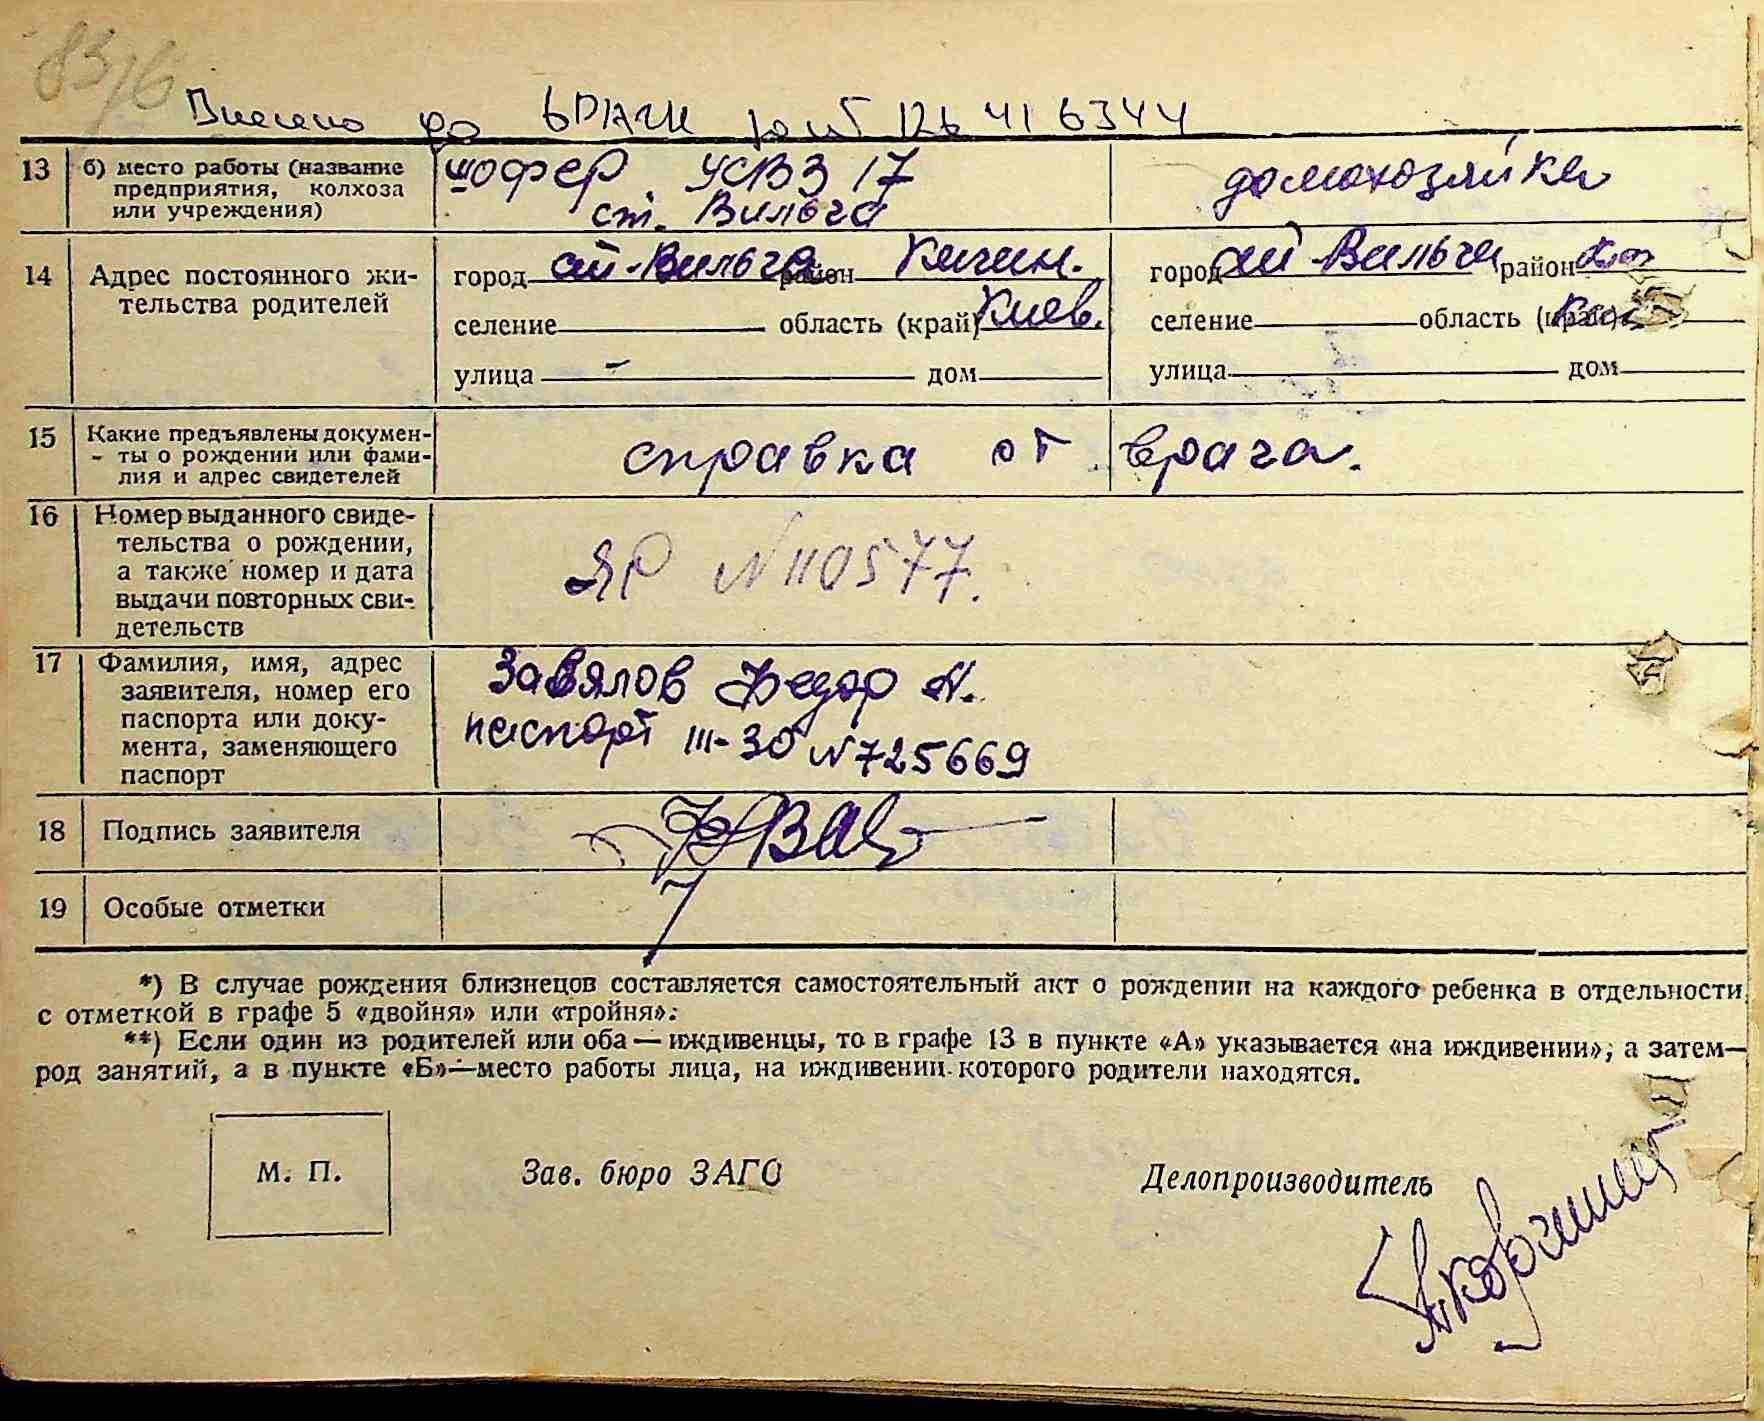 83/6
Внесено до ДРАЦС 12641 6344
13 б) место работы (название предприятия, колхоза или учреждения)
шофер. УСВЗ 17
ст. Вильча
домохозяйка
14 Адрес постоянного жительства родителей
город ст. Вильча район
селение область (край) Киев.
улица – дом
город ст. Вильча район
селение область (край)
улица дом
15 Какие предъявлены документы о рождении или фамилия и адрес свидетелей
справка от врача.
16 Номер выданного свидетельства о рождении, а также номер и дата выдачи повторных свидетельств
ЯР N 110577.
17 Фамилия, имя, адрес заявителя, номер его паспорта или документа, заменяющего паспорт
Завялов Федор
паспорт III-30 N 725669
18 Подпись заявителя
19 Особые отметки
*) В случае рождения близнецов составляется самостоятельный акт о рождении на каждого ребенка в отдельности
с отметкой в графе 5 «двойня» или «тройня».
**) Если один из родителей или оба — иждивенцы, то в графе 13 в пункте «А» указывается «на иждивении», а затем—
род занятий, а в пункте «Б»—место работы лица, на иждивении которого родители находятся.
М. П.
Зав. бюро ЗАГС
Делопроизводитель